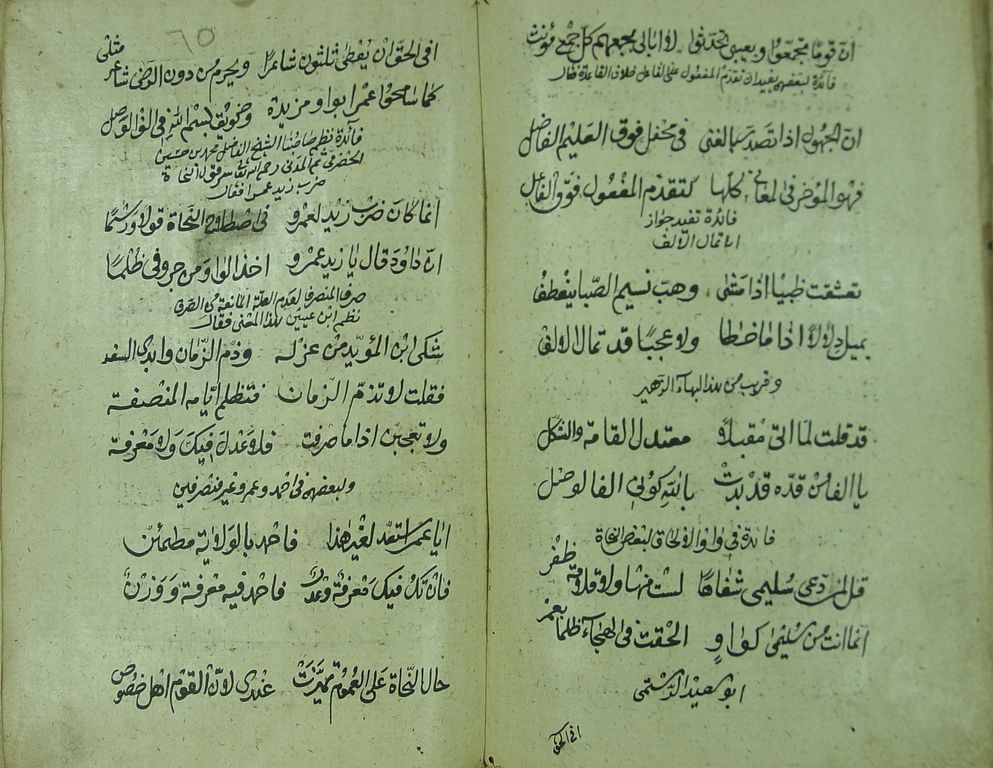 ان قوما تجمعوا وبعيبي تحدثوا لا ابالي بجمعهم كل جمع مؤنث
فائدة لبعضهم بقيدان تقدم المفعول على الفاعل خلاف القاعدة فقال
ان الجهول اذا تصدر بالغنى في محفل فوق العليم الفاضل
فهو المؤخر في المعاني كلها كتقدم المفعول فوق الفاعل
فائدة تفيد جواز
امالة الالف
تعشقت ظبيا اذا مشى وهب نسيم الصبا ينعطف
يميل دلالا اذا ما خطا ولا عجبا قد تمال الالف
وقريب من هذا البهاء الزهير
قد قلت لما اتى مقبلا معتدل القامة والشكل
يا الفا من قده قد بدت بالله كوني الف الوصل
فائدة في واو الالحاق لبعض النحاة
قل لمن يدعي سليمى شفاها لست منها ولا قلامة ظفر
انما انت من سليمى كواو الحقت في الهجاء ظلما بعمر
ابو سعيد الرستمي
افي الحق
٦٥
افي الحق ان يعطى ثلثون شاعرا ويحرم من دون الرضى شاعر مثلي
كما سامحوا عمرا بواو مزيدة وضويق بسم الله في الف الوصل
فائدة نظم صاحبنا الشيخ الفاضل محمد بن حسين
الحضرمي ثم المدني رحمه الله تعالى سر قول النحاة
ضرب زيد عمرا فقال
انما كان ضرب زيد لعمرو في اصطلاح النحاة قولا ورسما
ان داؤد قال يا زيد عمرو اخذ الواو من حروفي ظلما
صرف المنصرف لعدم العلة المانعة من الصرف
نظم ابن عنين هذا المعنى فقال
شكى ابن المؤيد من عزله وذم الزمان وابدى السفه
فقلت له لا تذم الزمان فتظلم ايامه المنصفة
ولا تعجبن اذا ما صرفت فلا عدل فيك ولا معرفة
ولبعضهم في احمد وعمر وغير منصرفين
ايا عمر استعد لغير هذا فاحمد بالولاية مطمئن
فان تك فيك معرفة وعدل فاحمد فيه معرفة ووزن
حال النحاة على العموم تميزت عندي لان القوم اهل خصوص